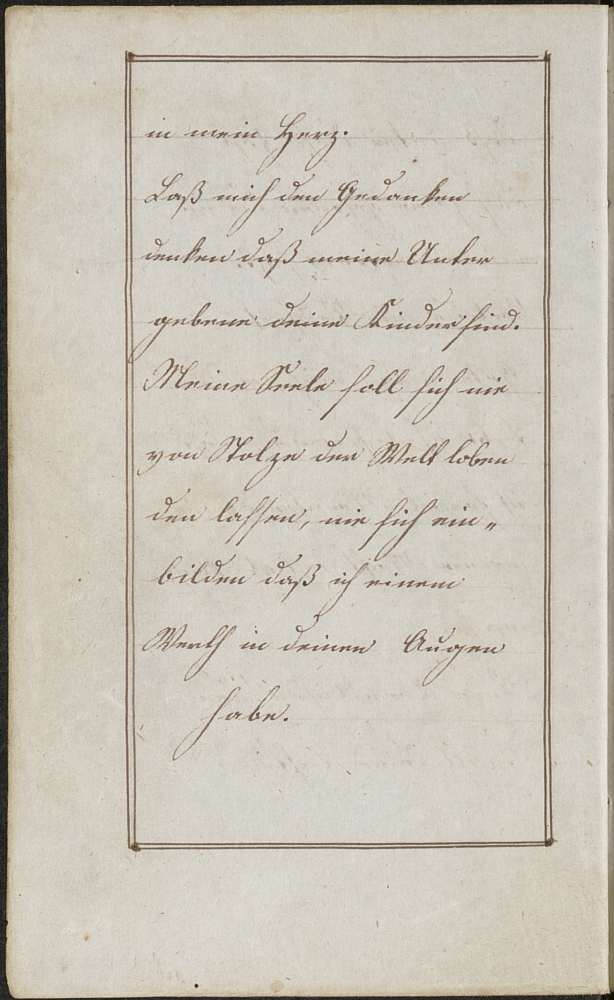 in mein Herz.
Laß mich den Gedanken
denken daß meine Unter
gebene deine Kinder sind.
Meine Seele soll sich nie
von Stolze der Welt loben
den lassen, nie sich ein„
bilden daß ich einem
Werth in deinen Augen
habe.